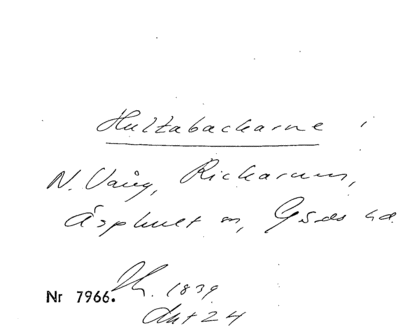 Hultabackarne i
N. Vång, Rickarum,
Äsphult m, Gärds hd.
Nr 7966. 1839
Akt 24